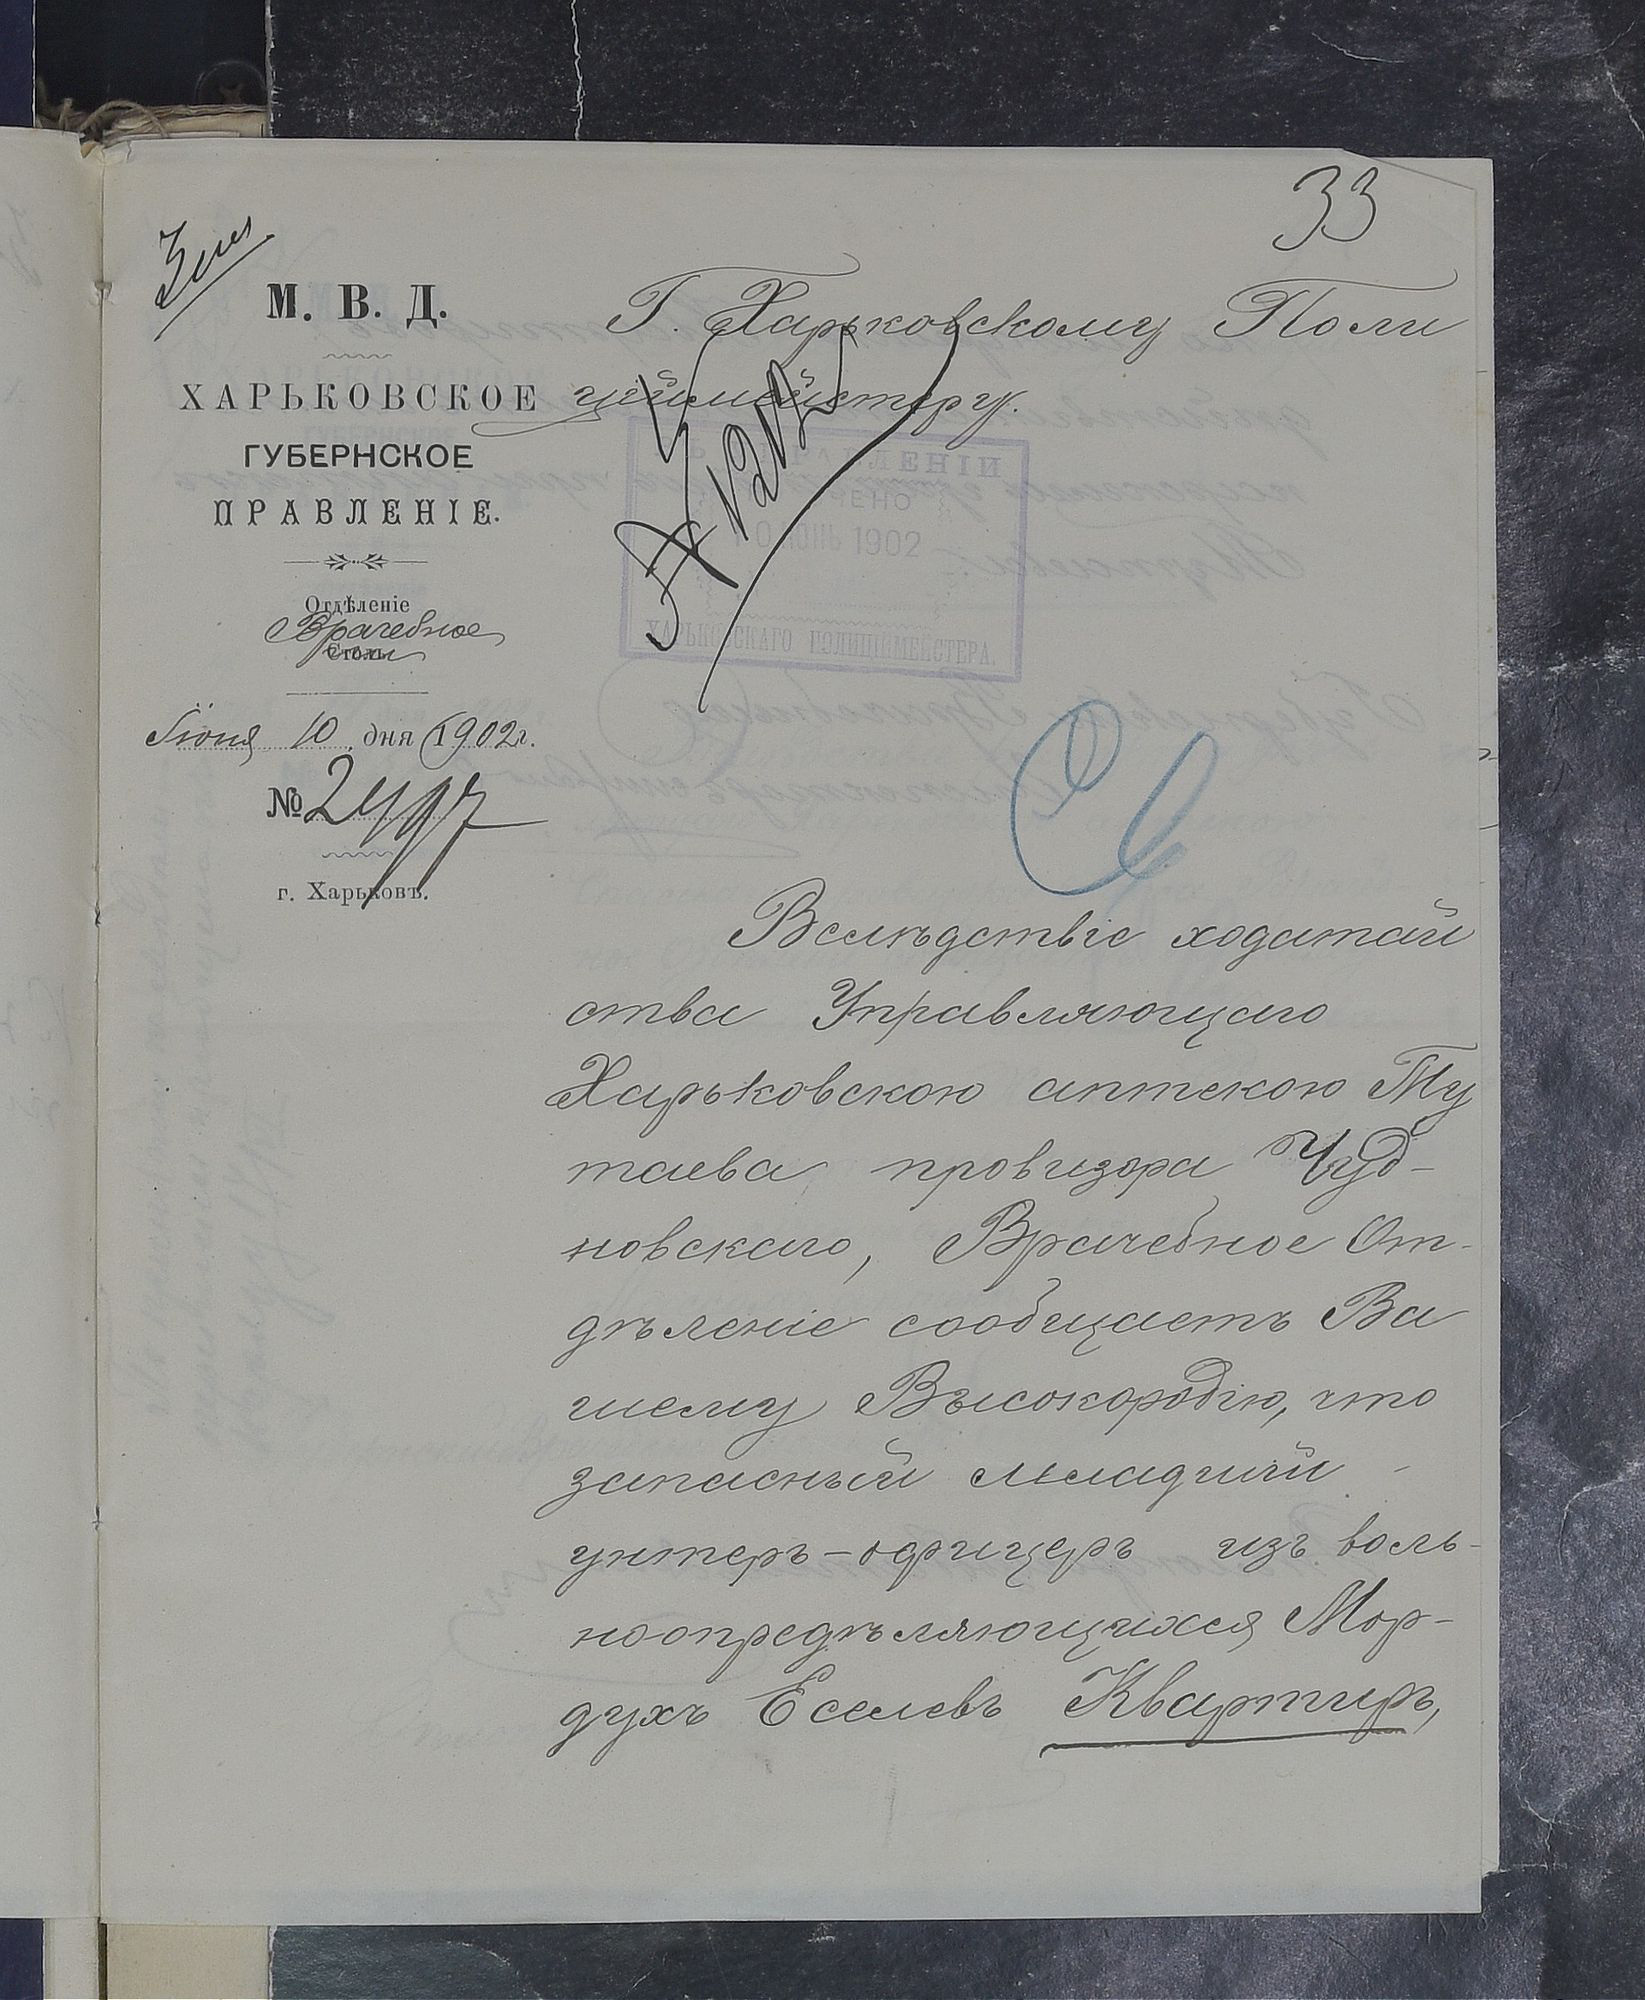 33
М. В. Д.
ХАРЬКОВСКОЕ
ГУБЕРНСКОЕ
ПРАВЛЕНІЕ.
Отдѣленіе
Врачебное
Столъ
Іюня 10 дня 1902 г.
№ 2497
г. Харьковъ.
Г. Харьковскому Поли
цiймейстеру.
ЮНЬ 1902
ХАРЬКОВСКАГО ПОЛИЦІЙМЕЙСТЕРА.
Вслѣдствіе ходатай
ства Управляющаго
Харьковскою аптекою Ту
таева провизора Чуд-
новскаго, Врачебное От-
дѣленіе сообщаетъ Ва
шему Высокородію, что
запасный младшій
унтеръ-офицеръ изъ воль-
ноопредѣляющихся Мор-
духъ Еселевъ Квартиръ,